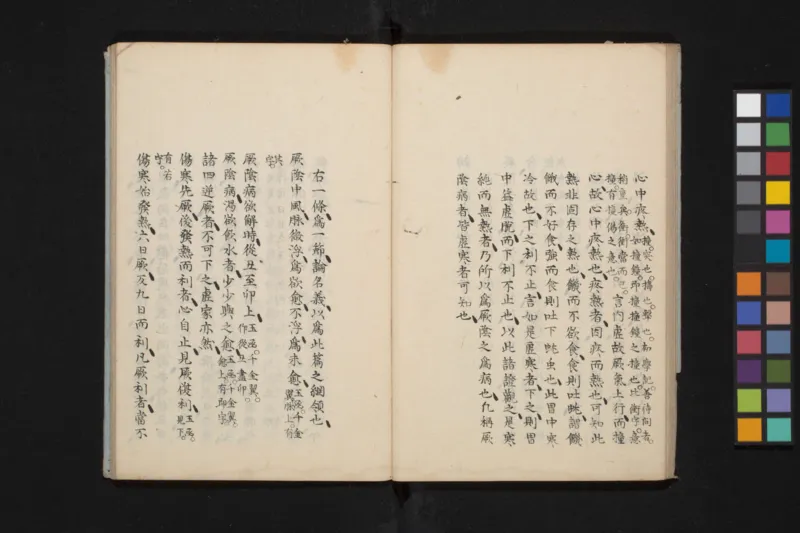 心中疼熱撞突也擣也擊也如學記善待問者
如撞鐘即撞撞鐘之撞也此衝字意
撞有撞傷之意也
言內虛故厥氣上行而撞
心故心中疼熱也疼熱者因疼而熱也可知此
熱非固存之熱也饑而不欲食食則吐蚘謂饑
餓而不好食強而食則吐下蚘虫也此胃中寒
冷故也下之利不止言如是虛寒者下之則胃
中益虛脫而下利不止也以此諸證觀之是寒
純而無熱者乃所以為厥陰之為病也凡稱厥
陰病者皆虛寒者可知也
右一條為一節論名義以為此篇之綱領也
厥陰中風脈微浮為欲愈不浮為未愈玉函千金翼脈上有其字
厥陰病欲解時從丑至卯上玉函千金翼作從丑盡卯
厥陰病渴欲飲水者少少與之愈玉函千金翼愈上有即字
諸四逆厥者不可下之虛家亦然
傷寒先厥後發熱而利者必自止見厥復利玉函見下有若字
傷寒始發熱六日厥反九日而利凡厥利者當不